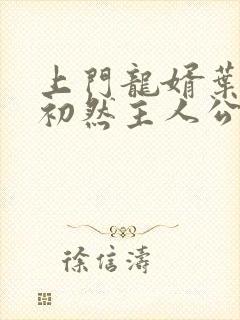 上門龍婿葉
初然主人公
徐信濤